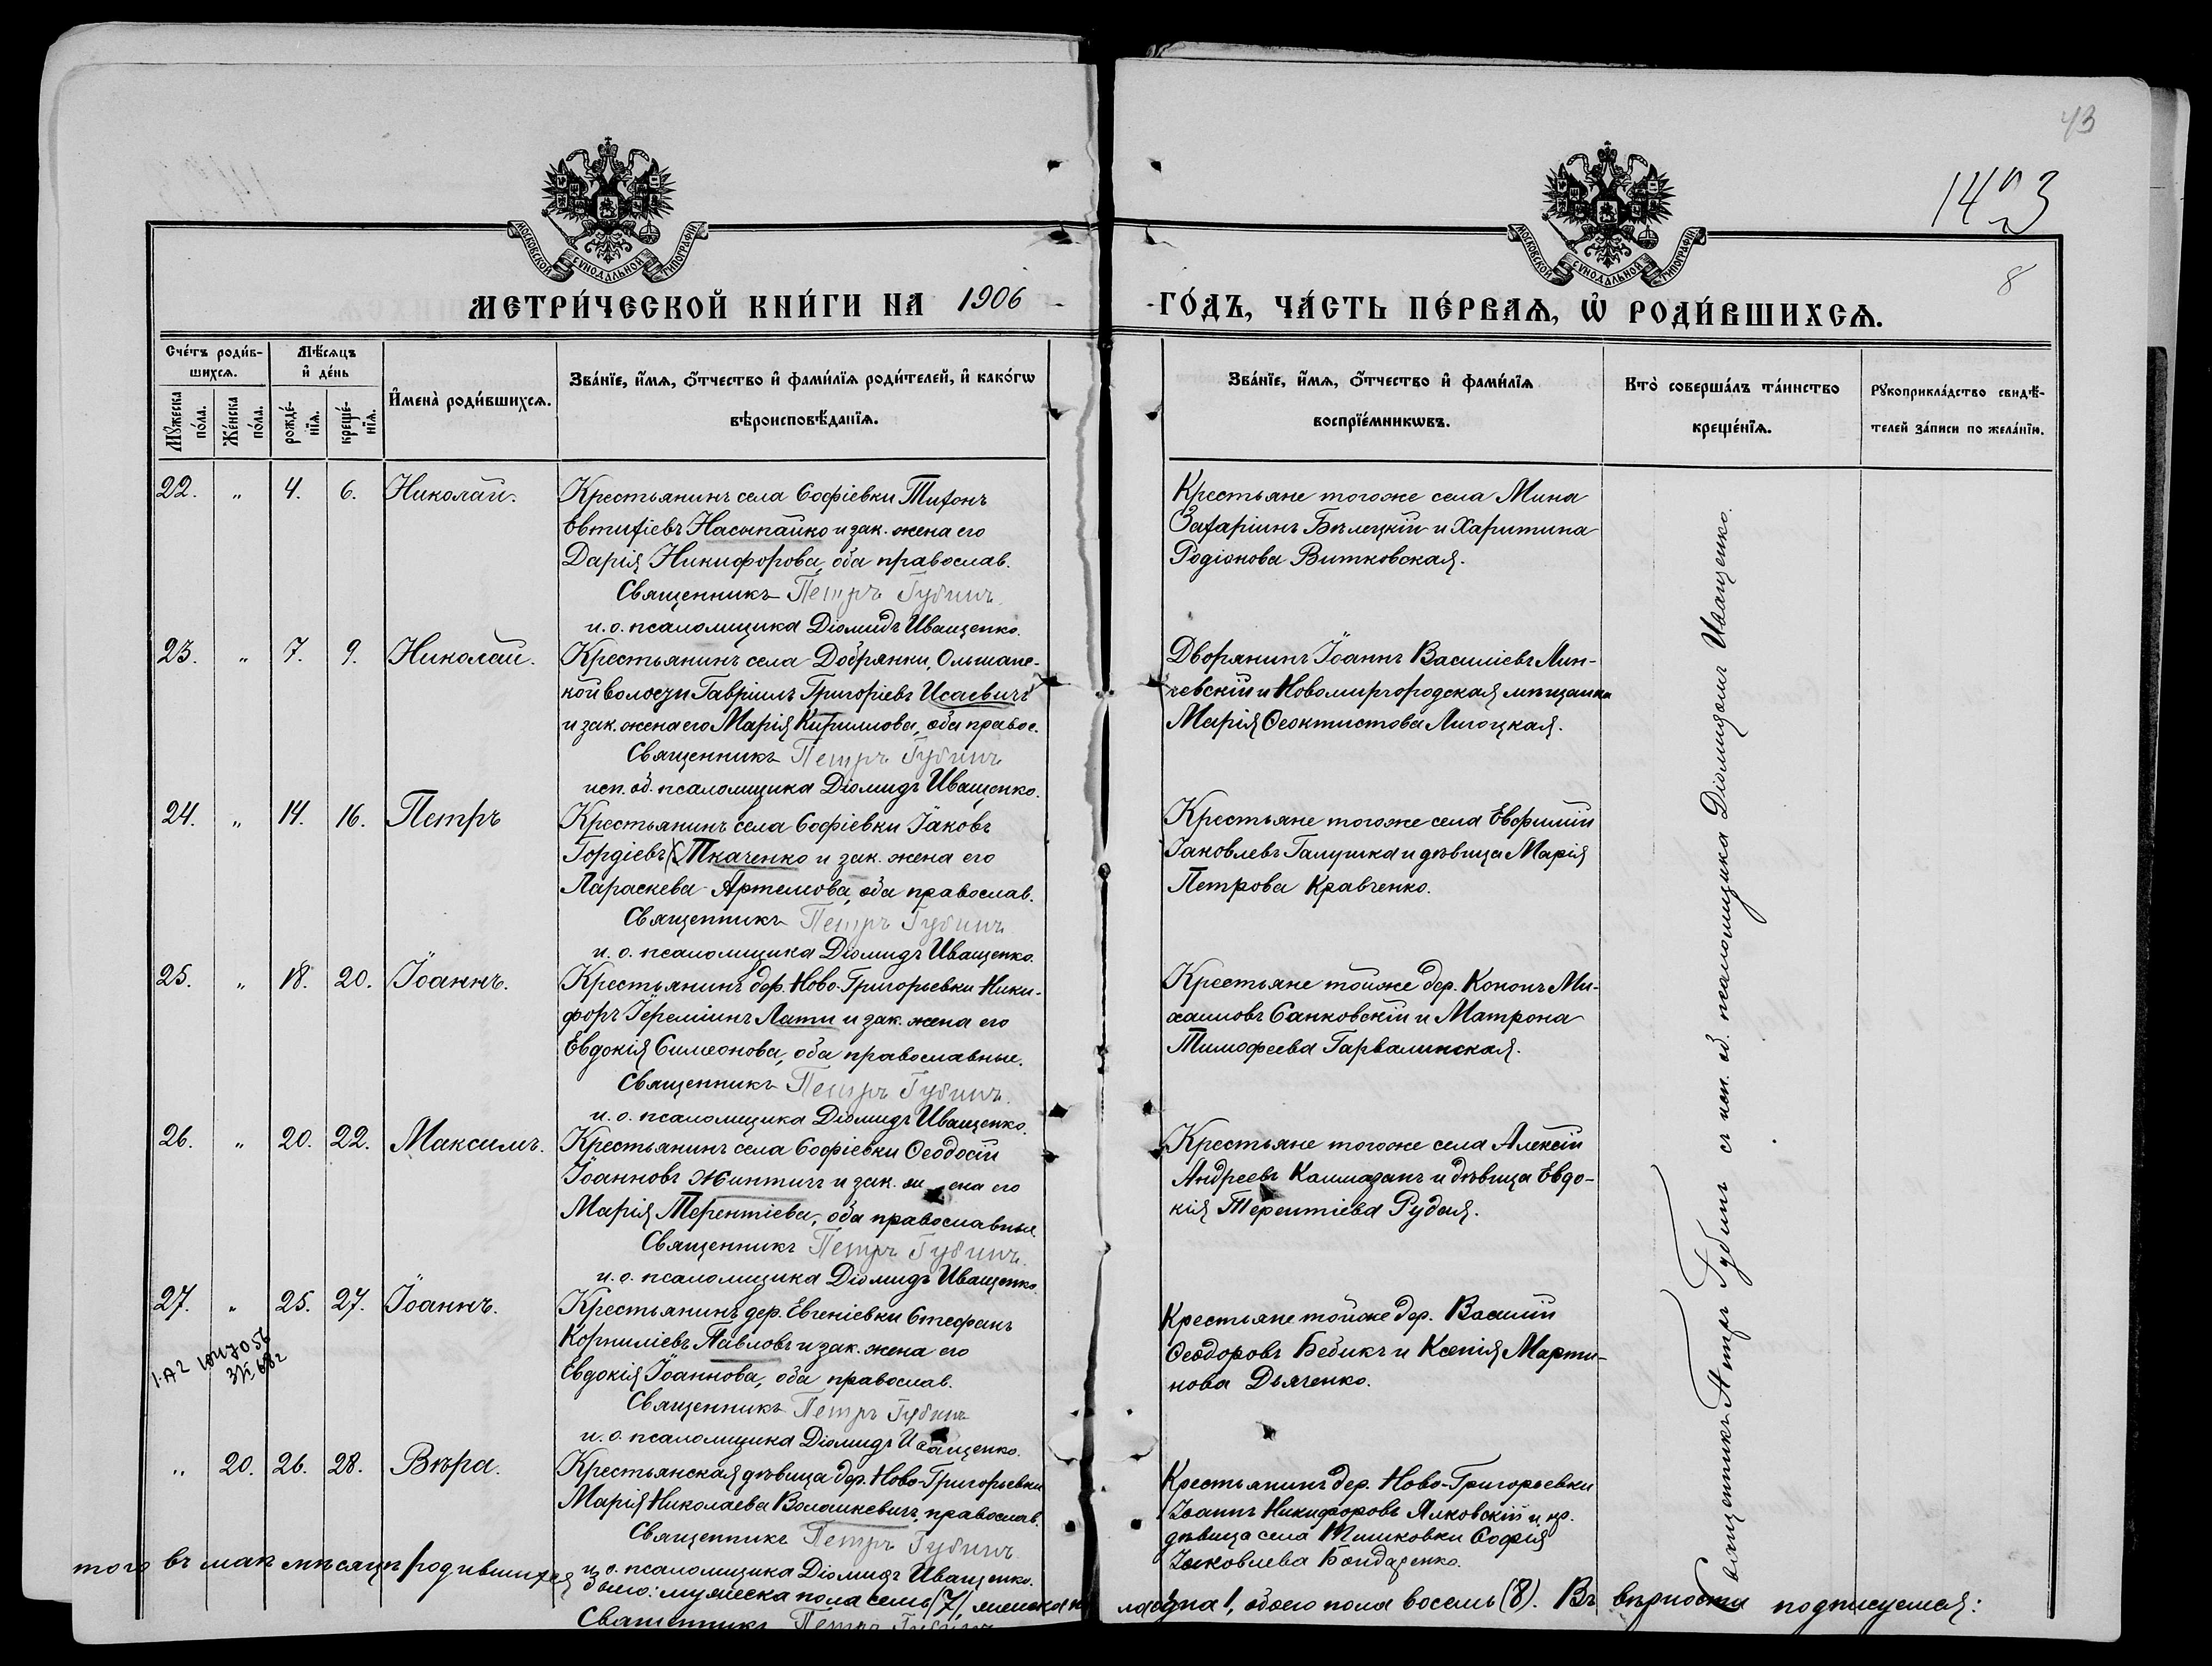 43
1423
8
МОСКОВСКОЙ СѴНОДАЛЬНОЙ ТИПОГРАФІИ
МОСКОВСКОЙ СѴНОДАЛЬНОЙ ТИПОГРАФІИ
МЕТРИ́ЧЕСКОЙ КНИ́ГИ НА 1906
ГО́ДЪ, ЧА́СТЬ ПЕ́РВАѦ, Ѡ҆ РОДИ́ВШИХСѦ.
Сче́тъ роди́в-
шихсѧ.
Мѣ́сѧцъ
и҆ де́нь
Мꙋ́жеска по́ла.
Же́нска по́ла.
рожде́-нїѧ.
креще́-нїѧ.
И҆мена̀ роди́вшихсѧ.
Зва́нїе, и҆́мѧ, ѻ҆́тчество и҆ фами́лїѧ роди́телей, и҆ како́гѡ
вѣроисповѣ́данїѧ.
Зва́нїе, и҆́мѧ, ѻ҆́тчество и҆ фами́лїѧ
воспрїе́мникѡвъ.
Кто̀ соверша́лъ та́инство
креще́нїѧ.
Рꙋкоприкла́дство свидѣ́-
телей за́писи по жела́нїю.
22. " 4. 6. Николай.
Крестьянинъ села Софіевки Тихонъ
Евтихіевъ Насыпайко и зак. жена его
Дарія Никифорова, оба православ.
Священникъ Петръ Губинъ
и. о. псаломщика Діомидъ Иващенко.
Крестьяне тогоже села Мина
Захаріинъ Бѣлецкій и Харитина
Родіонова Витковская.
23. " 7. 9. Николай.
Крестьянинъ села Добрянки, Ольшанс-
кой волости Гавріилъ Григоріевъ Исаевичъ
и зак. жена его Марія Кириллова, оба правос.
Священникъ Петръ Губинъ
исп. об. псаломщика Діомидъ Иващенко.
Дворянинъ Іоаннъ Василіевъ Лин-
чевскій и Новомиргородская мѣщанка
Марія Ѳеоктистова Лигоцкая.
24. " 14. 16. Петръ
Крестьянинъ села Софіевки Іаковъ
Гордіевъ Ткаченко и зак. жена его
Параскева Артемова, оба православ.
Священникъ Петръ Губинъ
и. о. псаломщика Діомидъ Иващенко.
Крестьяне тогоже села Евфимій
Іаковлевъ Галушка и дѣвица Марія
Петрова Кравченко.
25. " 18. 20. Іоаннъ.
Крестьянинъ дер. Ново-Григорьевки Ники-
форъ Іереміинъ Лати и зак. жена его
Евдокія Симеонова, оба православные.
Священникъ Петръ Губинъ.
и. о. псаломщика Діомидъ Иващенко.
Крестьяне тойже дер. Кононъ Ми-
хаиловъ Санковскій и Матрона
Тимофеева Гарвалинская.
26. " 20. 22. Максимъ.
Крестьянинъ села Софіевки Ѳеодосій
Іоанновъ Жинтичъ и зак. жена его
Марія Терентіева, оба православные
Священникъ Петръ Губинъ.
и. о. псаломщика Діомидъ Иващенко
Крестьяне тогоже села Алексій
Андреевъ Калмазанъ и дѣвица Евдо-
кія Терентіева Рудая.
27. " 25. 27. Іоаннъ.
Крестьянинъ дер. Евгеніевки Стефанъ
Корниліевъ Павловъ и зак. жена его
Евдокія Іоаннова, оба православ.
Священникъ Петръ Губинъ
и. о. псаломщика Діомидъ Иващенко.
Крестьяне тойже дер. Василій
Ѳеодоровъ Бебикъ и Ксенія Марти-
нова Дьяченко.
" 20. 26. 28. Вѣра.
Крестьянская дѣвица дер. Ново-Григорьевки
Марія Николаева Волошкевичъ, православ.
Священникъ Петръ Губинъ
и. о. псаломщика Діомидъ Иващенко.
Крестьянинъ дер. Ново-Григорьевки
Іоаннъ Никифоровъ Ялковскій и кр.
дѣвица села Тишковки Софія
Іаковлева Бондаренко.
Священникъ Петръ Губинъ съ исп. об. псаломщика Діомидомъ Иващенко.
того въ маѣ мѣсяцѣ родившихся было: мужеска пола семь (7), женска пола одна 1, обоего пола восемь (8). Въ вѣрности подписуемся:
Священникъ Петръ Губинъ